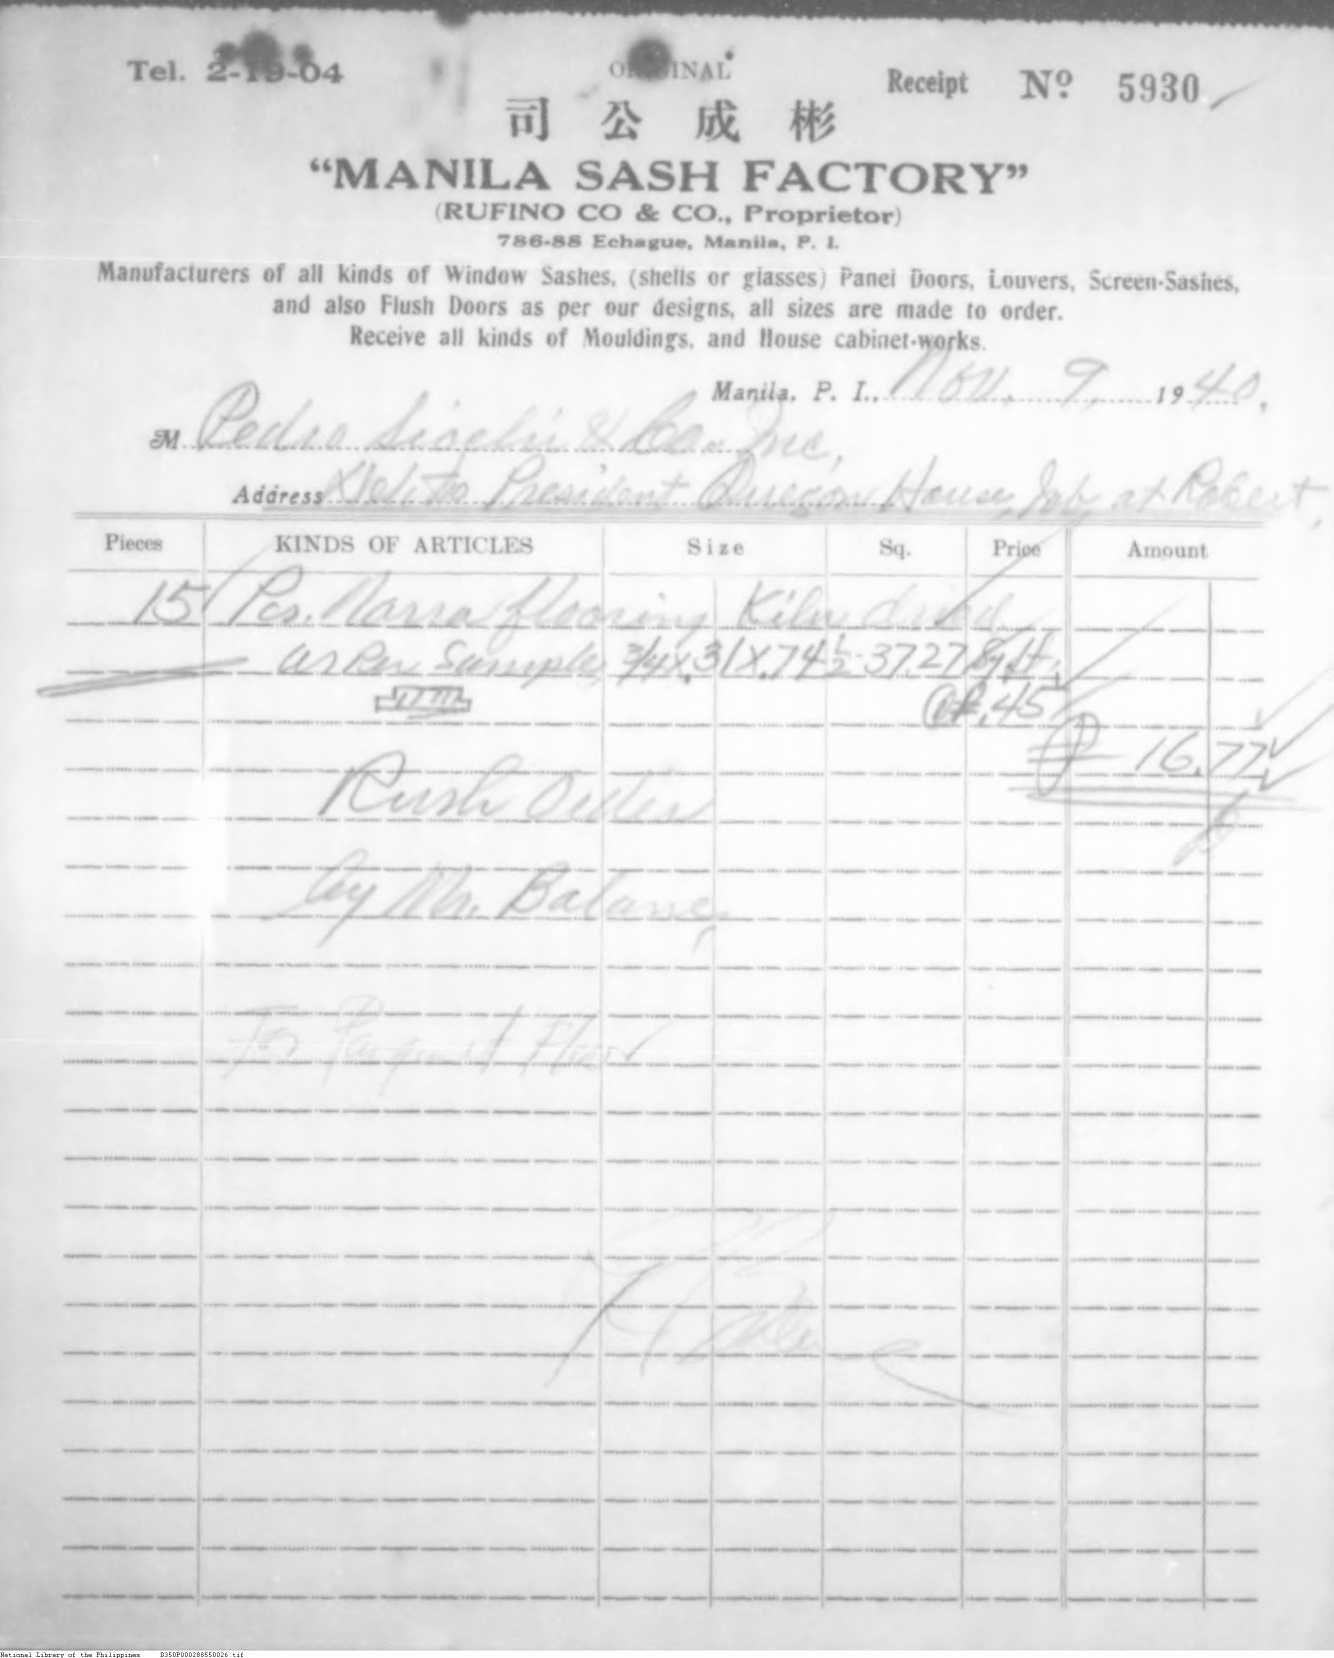 Tel. 2-19-04
ORIGINAL
Receipt Nº 5930
司公成彬
"MANILA SASH FACTORY"
(RUFINO CO & CO., Proprietor)
786-88 Echague, Manila, P. I.
Manufacturers of all kinds of Window Sashes, (shells or glasses) Panel Doors, Louvers, Screen-Sashes,
and also Flush Doors as per our designs, all sizes are made to order.
Receive all kinds of Mouldings, and House cabinet-works.
Manila, P. I., Nov. 9, 1940.
M Pedro Siochi & Co. Inc,
Address Del. to President Quezon House, Job at Robert,
Pieces KINDS OF ARTICLES Size Sq. Price Amount
15 Pcs. Narra flooring Kiln dried
as Per Sample 3/4 x 31 x 74 1/2 - 37.27 Sq. ft.
@ P.45
P 16.77
Rush Order
by Mr.
For Parquet Floor
National Library of the Philippines D350P000288550026.tif